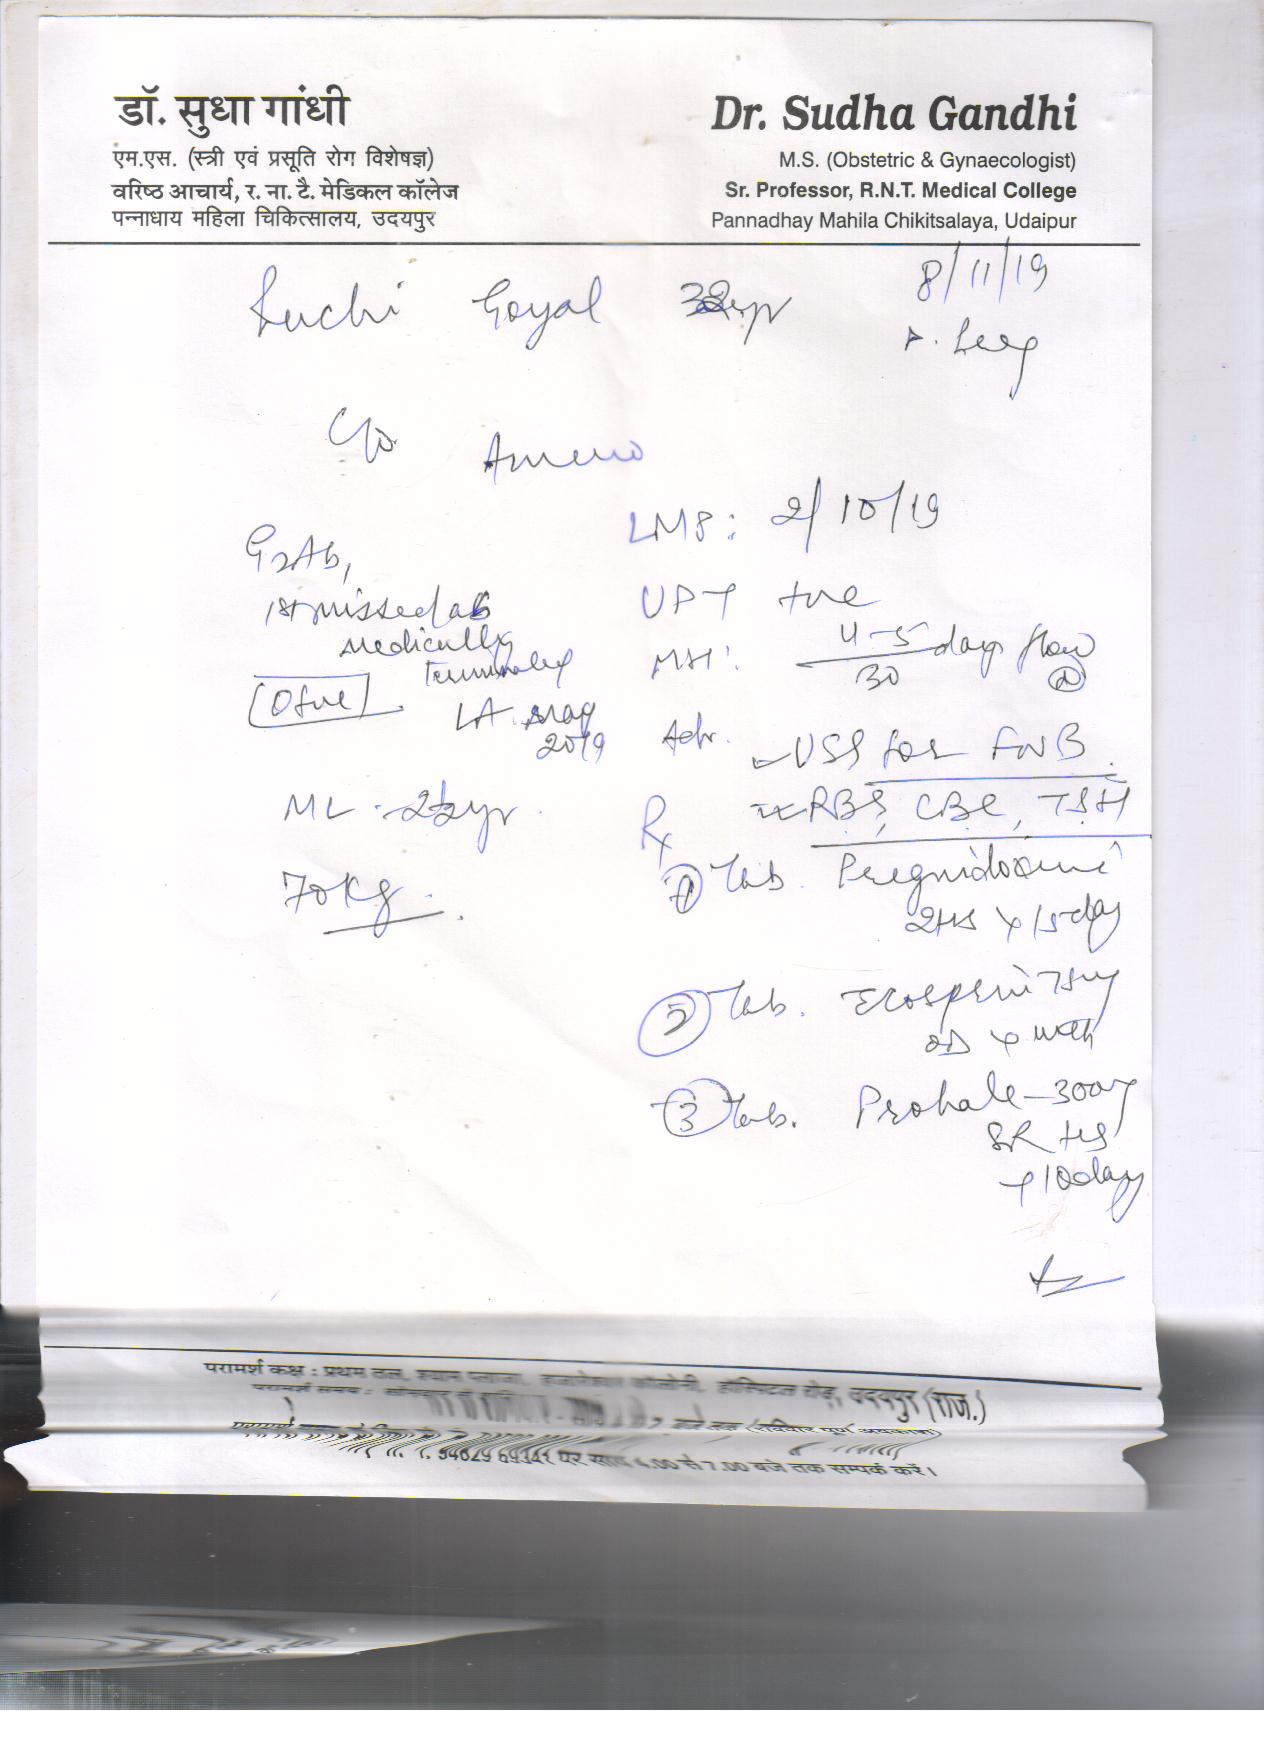 डॉ. सुधा गांधी
एम.एस. (स्त्री एवं प्रसूति रोग विशेषज्ञ)
वरिष्ठ आचार्य, र. ना. टै. मेडिकल कॉलेज
पन्नाधाय महिला चिकित्सालय, उदयपुर
Dr. Sudha Gandhi
M.S. (Obstetric & Gynaecologist)
Sr. Professor, R.N.T. Medical College
Pannadhay Mahila Chikitsalaya, Udaipur
8/11/19
Ruchi Goyal
C/o Ameno
LMP: 2/10/19
UPT +ve
MH: 4-5 days flow
30
G2Ab1
1st missed ab
medically
terminated
LA. may
2019
O +ve
ML - 2½ yr.
70 Kg.
Adv. USS for FWB
RBS, CBC, TSH
Rx
① Tab. Pregnidoxine
2HS x 15 day
② Tab. Ecosprin 75mg
OD x
③ Tab. 300mg
SR HS
x 10 days
परामर्श कक्ष : प्रथम तल, हॉस्पिटल रोड, उदयपुर (राज.)
परामर्श समय : बजे तक (रविवार पूर्ण अवकाश)
पर सायं 4.00 से 7.00 बजे तक सम्पर्क करें।